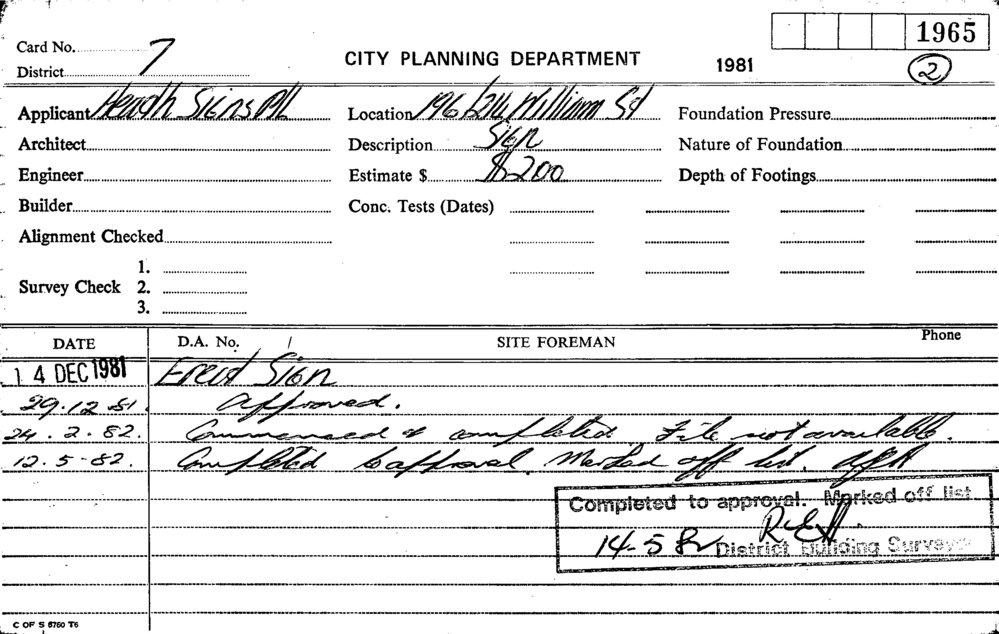 1965
Card No. 7
CITY PLANNING DEPARTMENT
1981
2
District
Applicant Heath Signs P/L
Location 196/214 William St
Foundation Pressure
Architect
Description Sign
Nature of Foundation
Engineer
Estimate $ $200
Depth of Footings
Builder
Conc. Tests (Dates)
Alignment Checked
1.
Survey Check 2.
3.
DATE D.A. No. / SITE FOREMAN Phone
14 DEC 1981 Erect Sign
29.12.81. Approved.
24.2.82. Commenced & completed. File not available.
12.5-82. Completed to approval. Marked off list.
Completed to approval. Marked off list
14-5 82 District Building Surveyor
C OF S 6760 T6